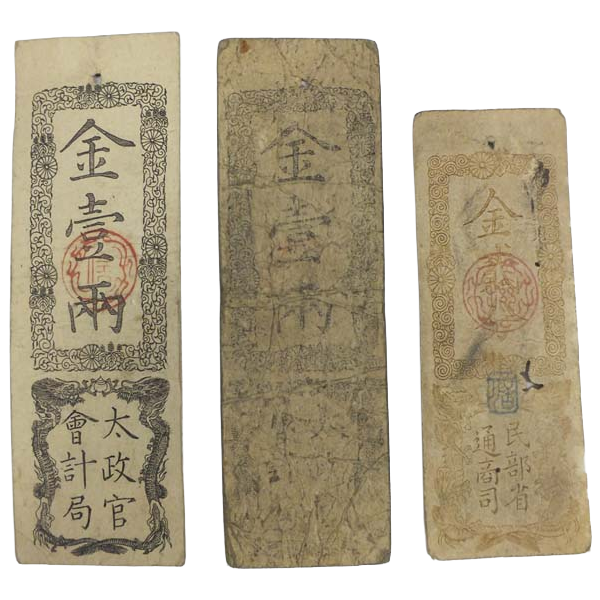 金壹兩
太政官
會計局
金壹兩
金
民部省
通商司